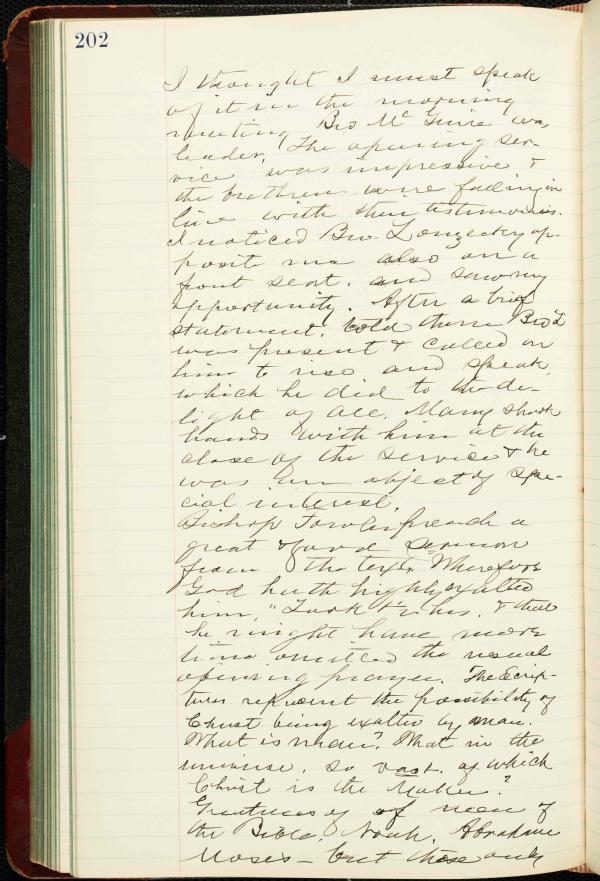 202
I thought I must speak
of it in the morning
meeting Bro McGuire was
leader. The opening ser-
vice was impressive &
the brethren were falling in
line with their testimonies.
I noticed Bro. Longecky op-
posite me also on a
front seat, and saw my
opportunity. After a brief
statement, told them Bro L
was present & called on
him to rise and speak
which he did to the de-
light of all. Many shook
hands with him at the
close of the service & he
was an object of spe-
cial interest.
Bishop Fowler preach a
great & grand sermon
from the text Wherefore
God hath highly exalted
him," Took 2 hrs. & that
he might have more
time omitted the usual
opening prayer. The Scrip-
tures represent the possibility of
Christ being exalted by man.
What is man? What in the
universe, so vast, of which
Christ is the Maker?
Greatness of men of
the Bible. Noah, Abraham
Moses - but these only